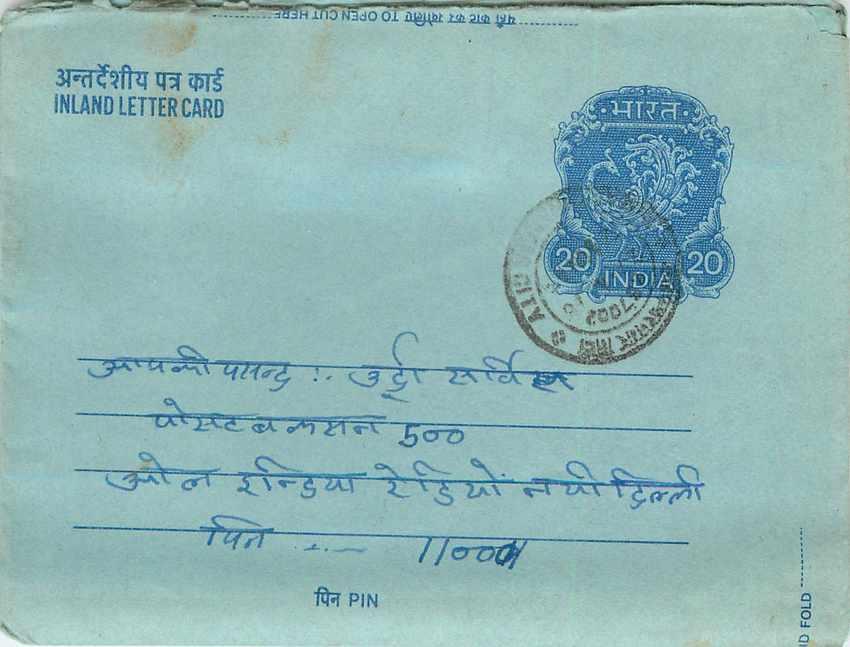 यहाँ काट कर खोलिए TO OPEN CUT HERE
अन्तर्देशीय पत्र कार्ड
INLAND LETTER CARD
भारत
20 INDIA 20
आपकी पसन्द :. उर्दू सर्विस
पोसट बकसन 500
ओल इन्डिया रेडियों नयी दिल्ली
पिन 110001
पिन PIN
ND FOLD